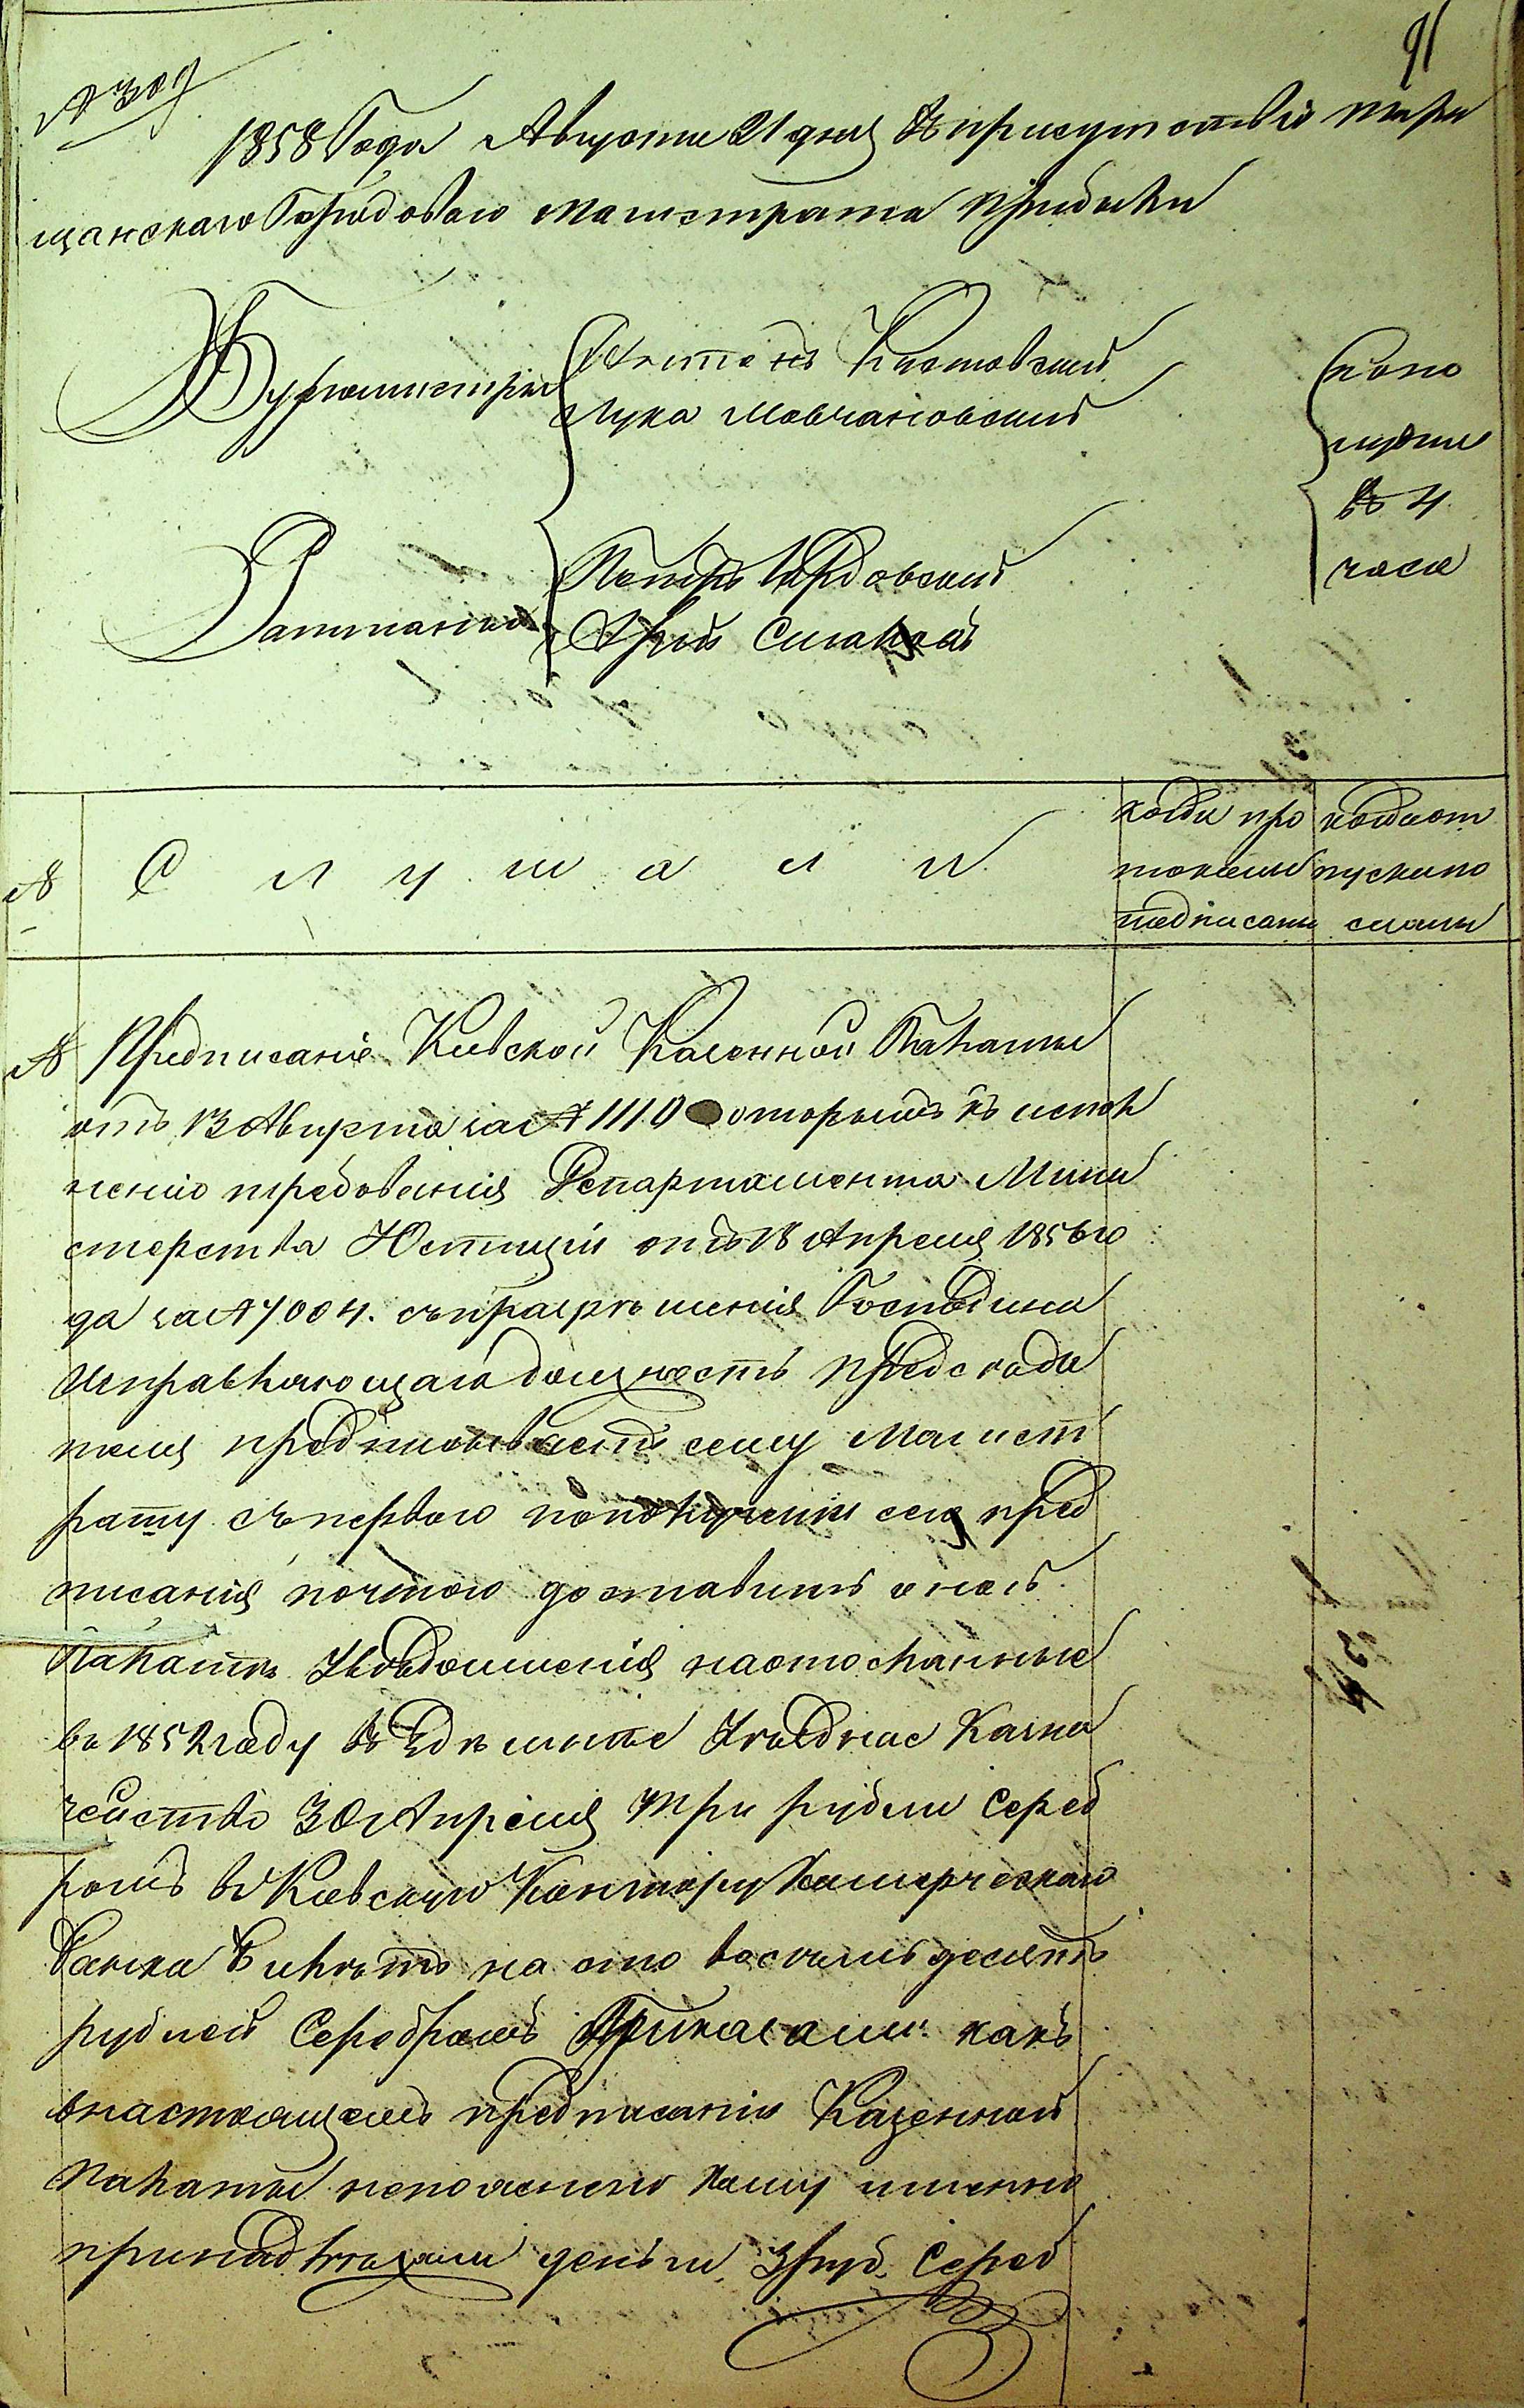 91
№ 309
1858 Года Августа 21 дня въ присутствіе тара
щанскаго Городоваго магистрата прибыли
Бургомистры
Антонъ Кистовскій
Лука Мовчановскій
Ратманы
Петръ
Сигалъ
пополу
въ 4
часа
№ С л у ш а л и
когда про
токолы
подписаны
когда от
пускано
сданы
№ Предписаніе Кіевской Казенной Палаты
отъ 13 Августа за № 1110 которымъ къ испол
ненію требованія Департамента Мини
стерства Юстиціи отъ 18 Апреля 1856 го
да за № 7004. съ разрѣшенія Господина
Исправляющаго должность председа
теля предписываетъ сему Магист
рату съ первою по получении сего пред
писанія почтою доставить оной
Палатѣ Уведомленія на отосланные
въ 1852 году въ Уездное Казна
чейство 30 Апреля три рубли сереб
ромъ въ Кіевскую Контору Комерческаго
банка билетъ на сто восемьдесятъ
рублей Серебромъ Приказали: какъ
внастоящемъ предписаніи Казенной
Палаты непоясненно кому именно
принадлежали деньги 3 руб. Сереб